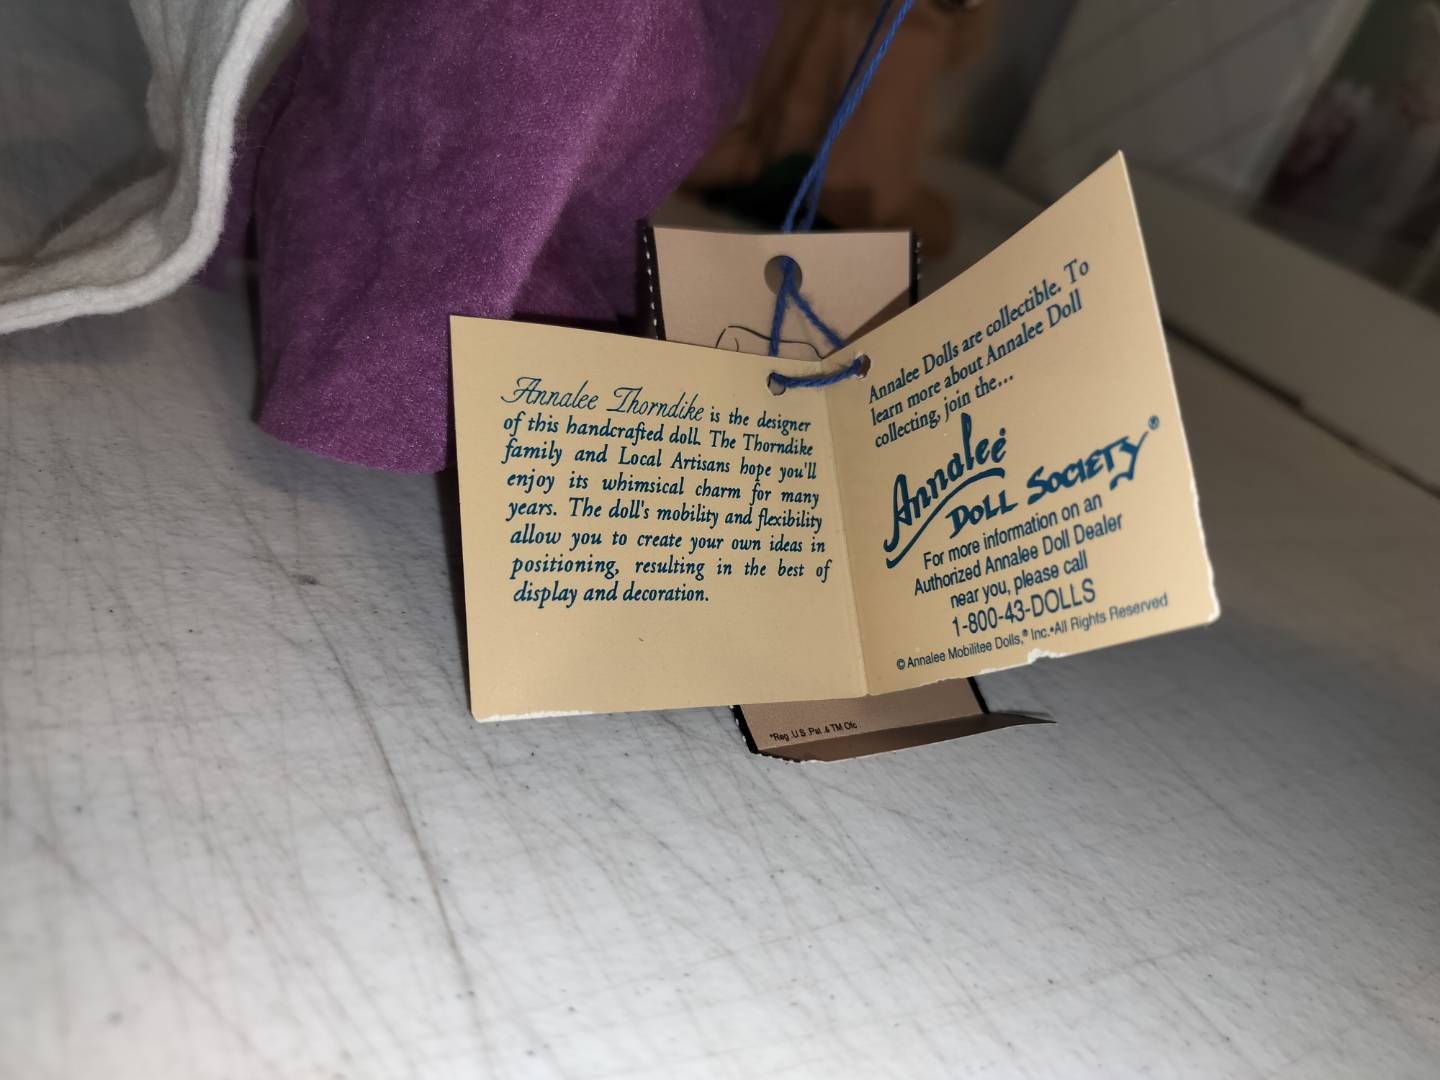 Annalee Thorndike is the designer
of this handcrafted doll. The Thorndike
family and Local Artisans hope you'll
enjoy its whimsical charm for many
years. The doll's mobility and flexibility
allow you to create your own ideas in
positioning, resulting in the best of
display and decoration.
Annalee Dolls are collectible. To
learn more about Annalee Doll
collecting, join the...
Annalee
DOLL SOCIETY®
For more information on an
Authorized Annalee Doll Dealer
near you, please call
1-800-43-DOLLS
© Annalee Mobilitee Dolls,® Inc.•All Rights Reserved
*Reg. U.S. Pat. & TM Ofc